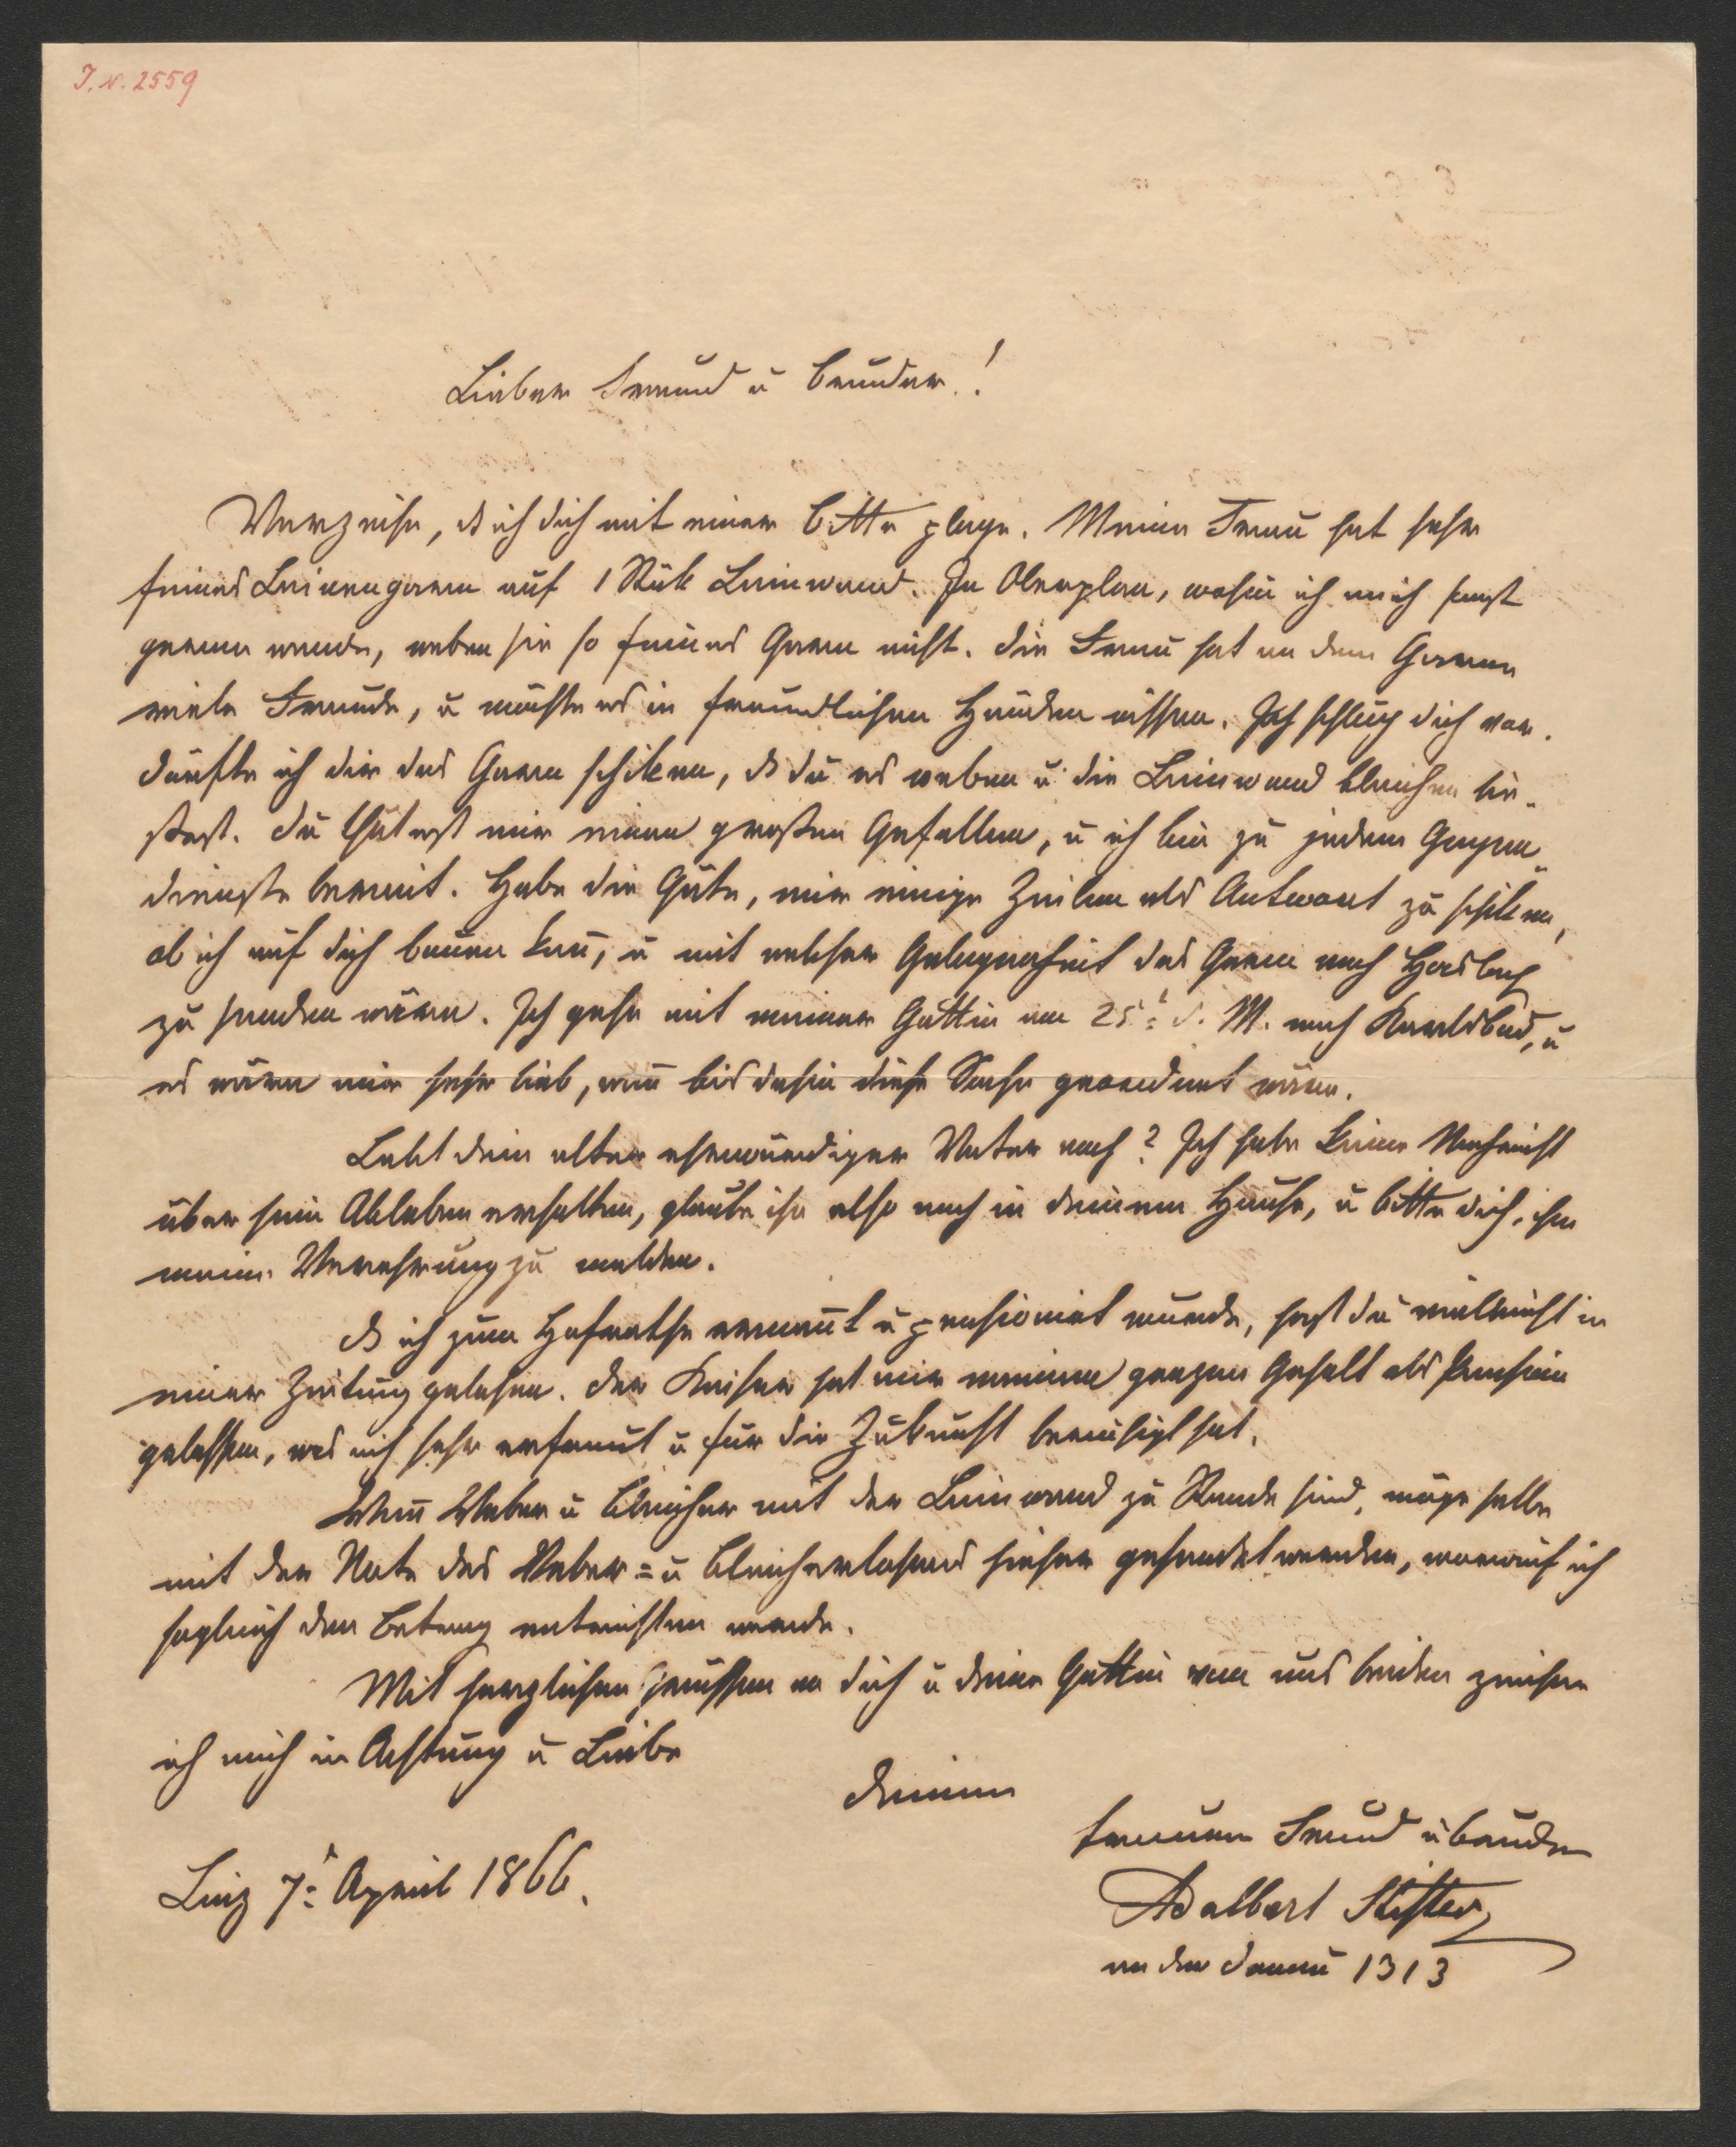 I. N. 2559
Lieber Freund u Bruder!
Verzeihe, ds ich dich mit einer Bitte plage. Meine Frau hat sehr
feines Leinengarn auf 1 Stük Leinwand. In Oberplan, wohin ich mich sonst
gerne wende, weben sie so feines Garn nicht. Die Frau hat an dem Garne
viele Freude, u möchte es in freundlichen Händen wissen. Ich schlug dich vor.
Dürfte ich dir das Garn schiken, ds du es weben u die Leinwand bleichen lie-
ßest. Du thätest mir einen großen Gefallen, u ich bin zu jedem Gegen-
dienste bereit. Habe die Güte, mir einige Zeilen als Antwort zu schiken,
ob ich auf dich bauen kan̄, u mit welcher Gelegenheit das Garn nach Haslach
zu senden wäre. Ich gehe mit meiner Gattin am 25t d. M. nach Karlsbad, u
es wäre mir sehr lieb, wen̄ bis dahin diese Sache geordnet wäre.
Lebt dein alter ehrwürdiger Vater noch? Ich habe keine Nachricht
über sein Ableben erhalten, glaube ihn also noch in deinem Hause, u bitte dich, ihm
meine Verehrung zu melden.
Ds ich zum Hofrathe ernan̄t u pensionirt wurde, hast du vielleicht in
einer Zeitung gelesen. Der Kaiser hat mir meinen ganzen Gehalt als Pension
gelassen, was mich sehr erfreut u für die Zukunft beruhigt hat.
Wen̄ Weber u Bleicher mit der Leinwand zu Stande sind, möge selbe
mit der Note des Weber= u Bleicherlohnes hieher gesendet werden, worauf ich
sogleich den Betrag entrichten werde.
Mit herzlichen Grüssen an dich u deine Gattin von uns beiden zeichne
ich mich in Achtung u Liebe
deinen
treuen Freund u Bruder
Linz 7t April 1866.
Adalbert Stifter
an der Donau 1313